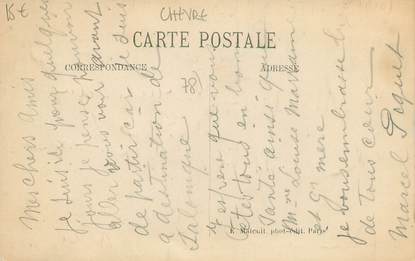 5€
CHEVRE
CARTE POSTALE
CORRESPONDANCE
ADRESSE
Mes chers Amis
je suis ici pour quelques
jours je pense pouvoir
aller vous voir avant
de partir car je suis
a destination de
Salonique
J'espere que vous
etes tous en bonne
Santé ainsi que
Mme Louise
et Gd mere
je vous embrasse
de tous cœur
Marcel
E. Malcuit, phot-édit. Paris